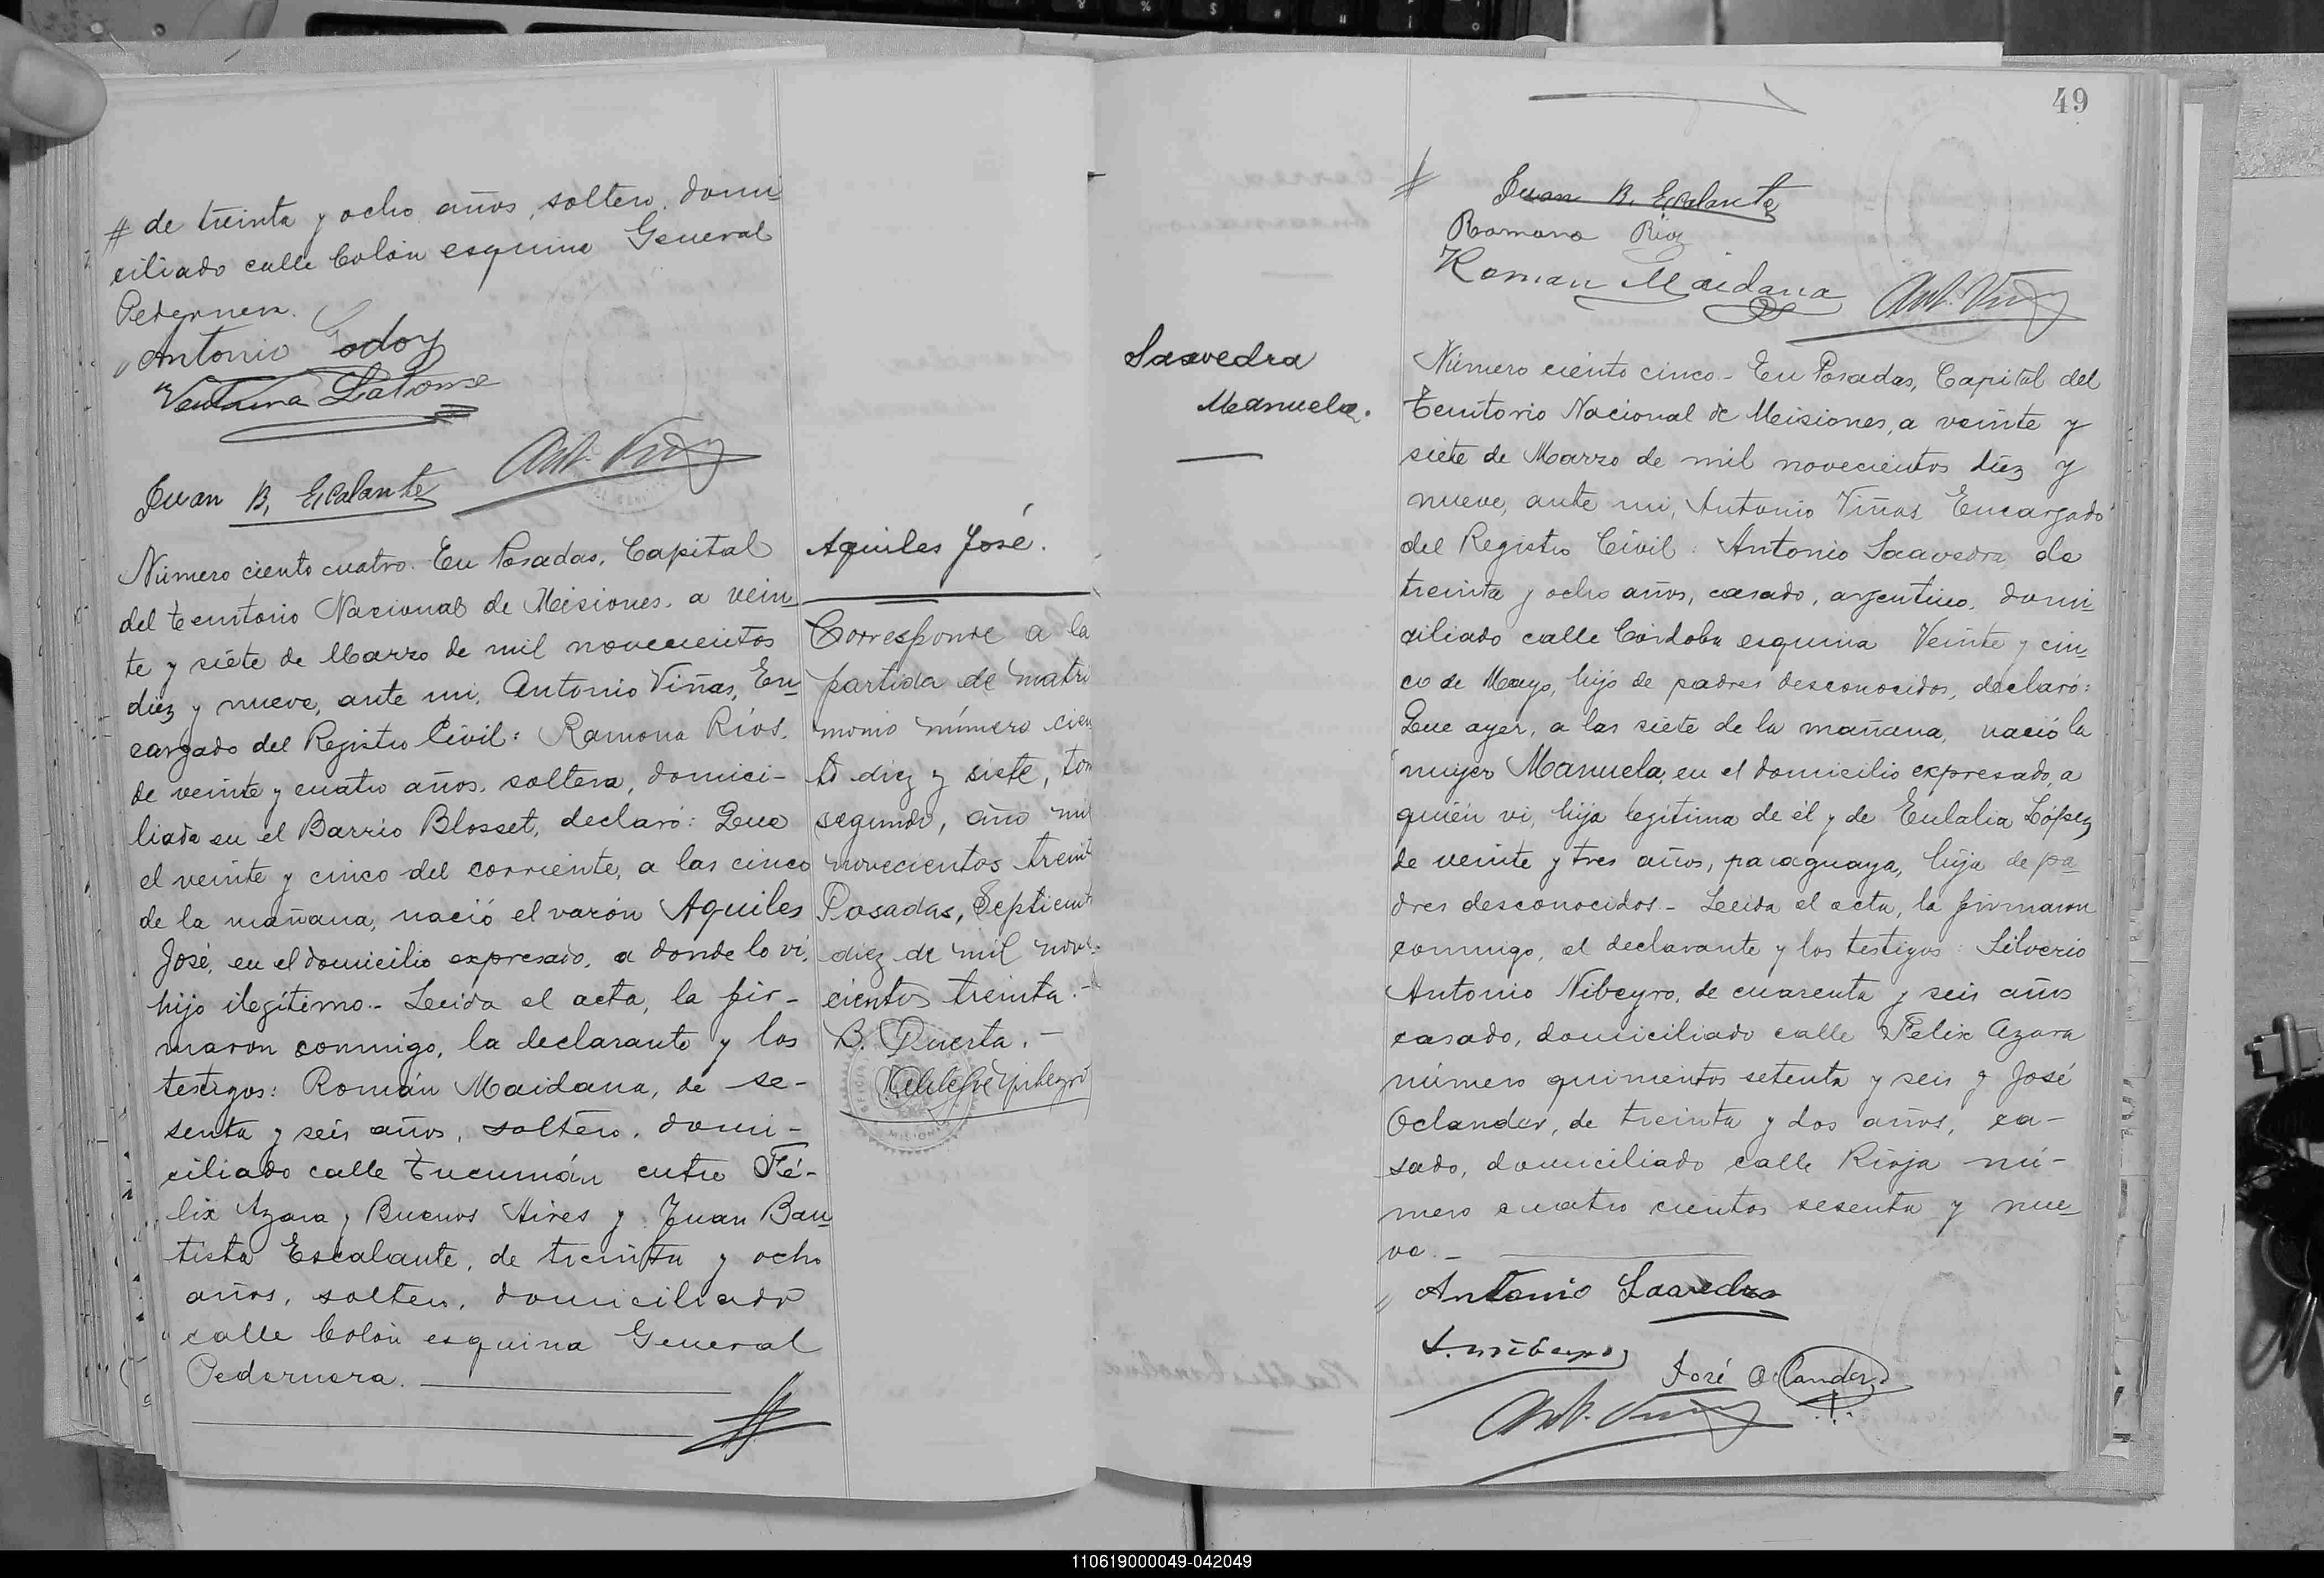 # de treinta y ocho años, soltero, domi-
ciliado calle Colón esquina General
Pedernera.
Antonio Godoy
Ventura Latorre
Juan B. Escalante
Ant. Viñas
Número ciento cuatro. En Posadas, Capital
del territorio Nacional de Misiones, a vein-
te y siete de Marzo de mil novecientos
diez y nueve, ante mi, Antonio Viñas, En-
cargado del Registro Civil: Ramona Ríos,
de veinte y cuatro años, soltera, domici-
liada en el Barrio Blosset, declaró: Que
el veinte y cinco del corriente, a las cinco
de la mañana, nació el varón Aquiles
José, en el domicilio expresado, a donde lo ví,
hijo ilegítimo.- Leida el acta, la fir-
maron conmigo, la declarante y los
testigos: Román Maidana, de se-
senta y seis años, soltero, domi-
ciliado calle Tucumán entre Fé-
lix Azara y Buenos Aires y Juan Bau-
tista Escalante, de treinta y ocho
años, soltero, domiciliado
calle Colón esquina General
Pedernera.
#
Aquiles José.
Corresponde a la
partida de matri
monio número cien
to diez y siete, tom
segundo, año mil
novecientos treint
Posadas, Septiemb
diez de mil nove-
cientos treinta.-
B. Puerta.-
49
#
Juan B. Escalante
Ramona Rios
Roman Maidana
Ant. Viñas
Saavedra
Manuela.
Número ciento cinco- En Posadas, Capital del
Territorio Nacional de Misiones, a veinte y
siete de Marzo de mil novecientos diez y
nueve, ante mi, Antonio Viñas, Encargado
del Registro Civil: Antonio Saavedra, de
treinta y ocho años, casado, argentino, domi
ciliado calle Córdoba esquina Veinte y cin-
co de Mayo, hijo de padres desconocidos, declaró:
Que ayer, a las siete de la mañana, nació la
mujer Manuela, en el domicilio expresado, a
quién vi, hija legítima de él y de Eulalia López,
de veinte y tres años, paraguaya, hija de pa-
dres desconocidos.- Leida el acta, la firmaron
conmigo, el declarante y los testigos: Silverio
Antonio Nibeyro, de cuarenta y seis años
casado, domiciliado calle Felix Azara
número quinientos setenta y seis y José
Oclander, de treinta y dos años, ca-
sado, domiciliado calle Rioja nú-
mero cuatro cientos sesenta y nue-
ve.-
Antonio Saavedra
S. Nibeyro
José Oclander
Ant. Viñas
110619000049-042049